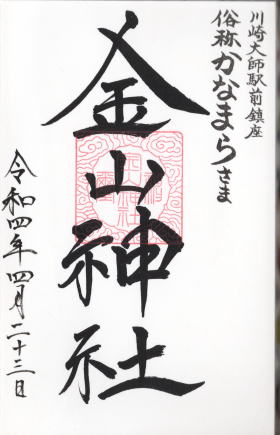 川崎大師駅前鎮座
俗称かなまらさま
金山神社
令和四年四月二十三日